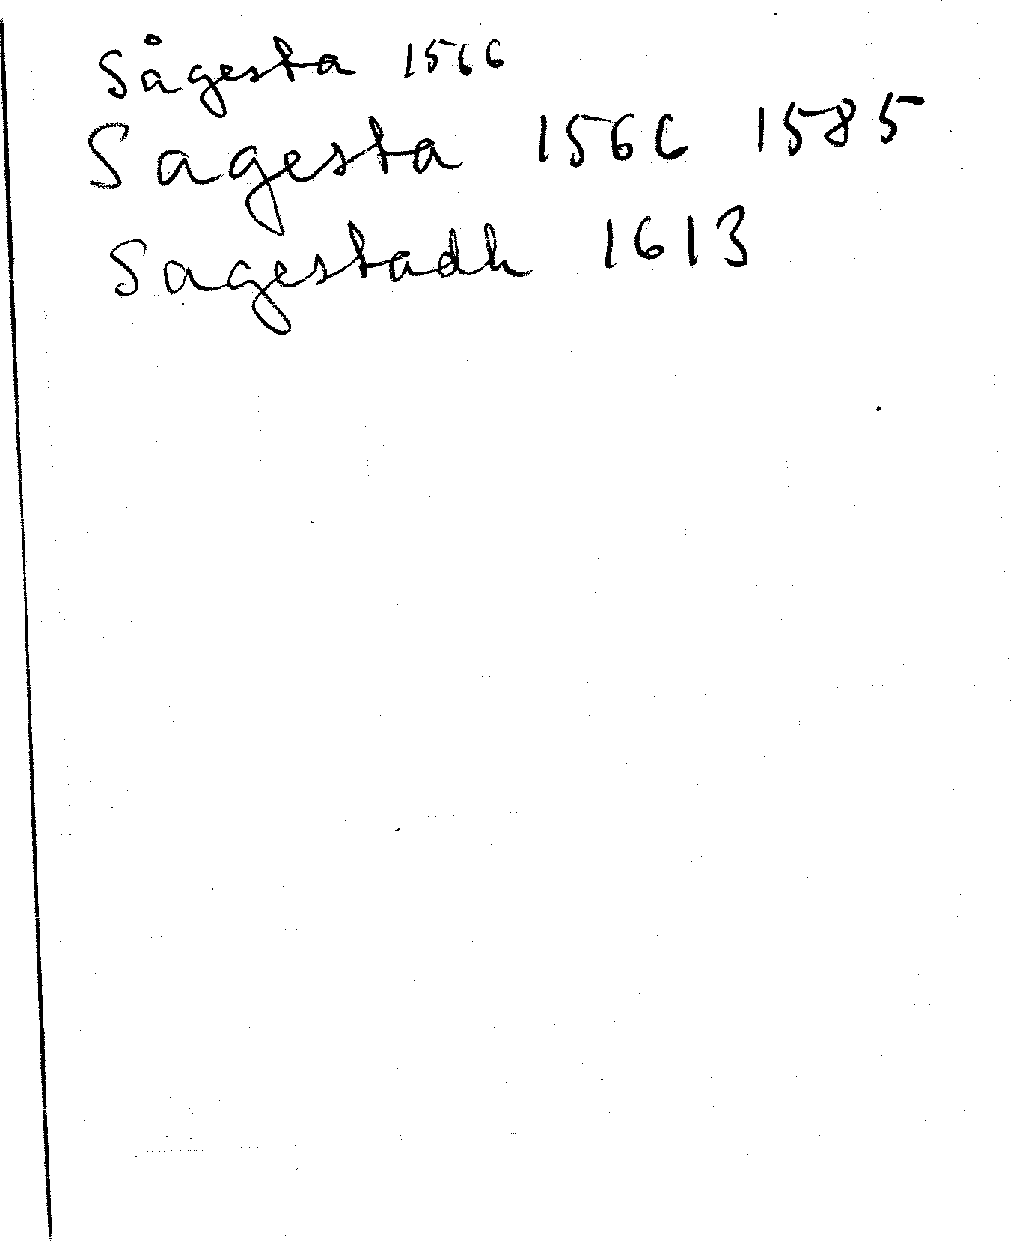 Sågesta 1566
Sagesta 1566 1585
Sagestadh 1613